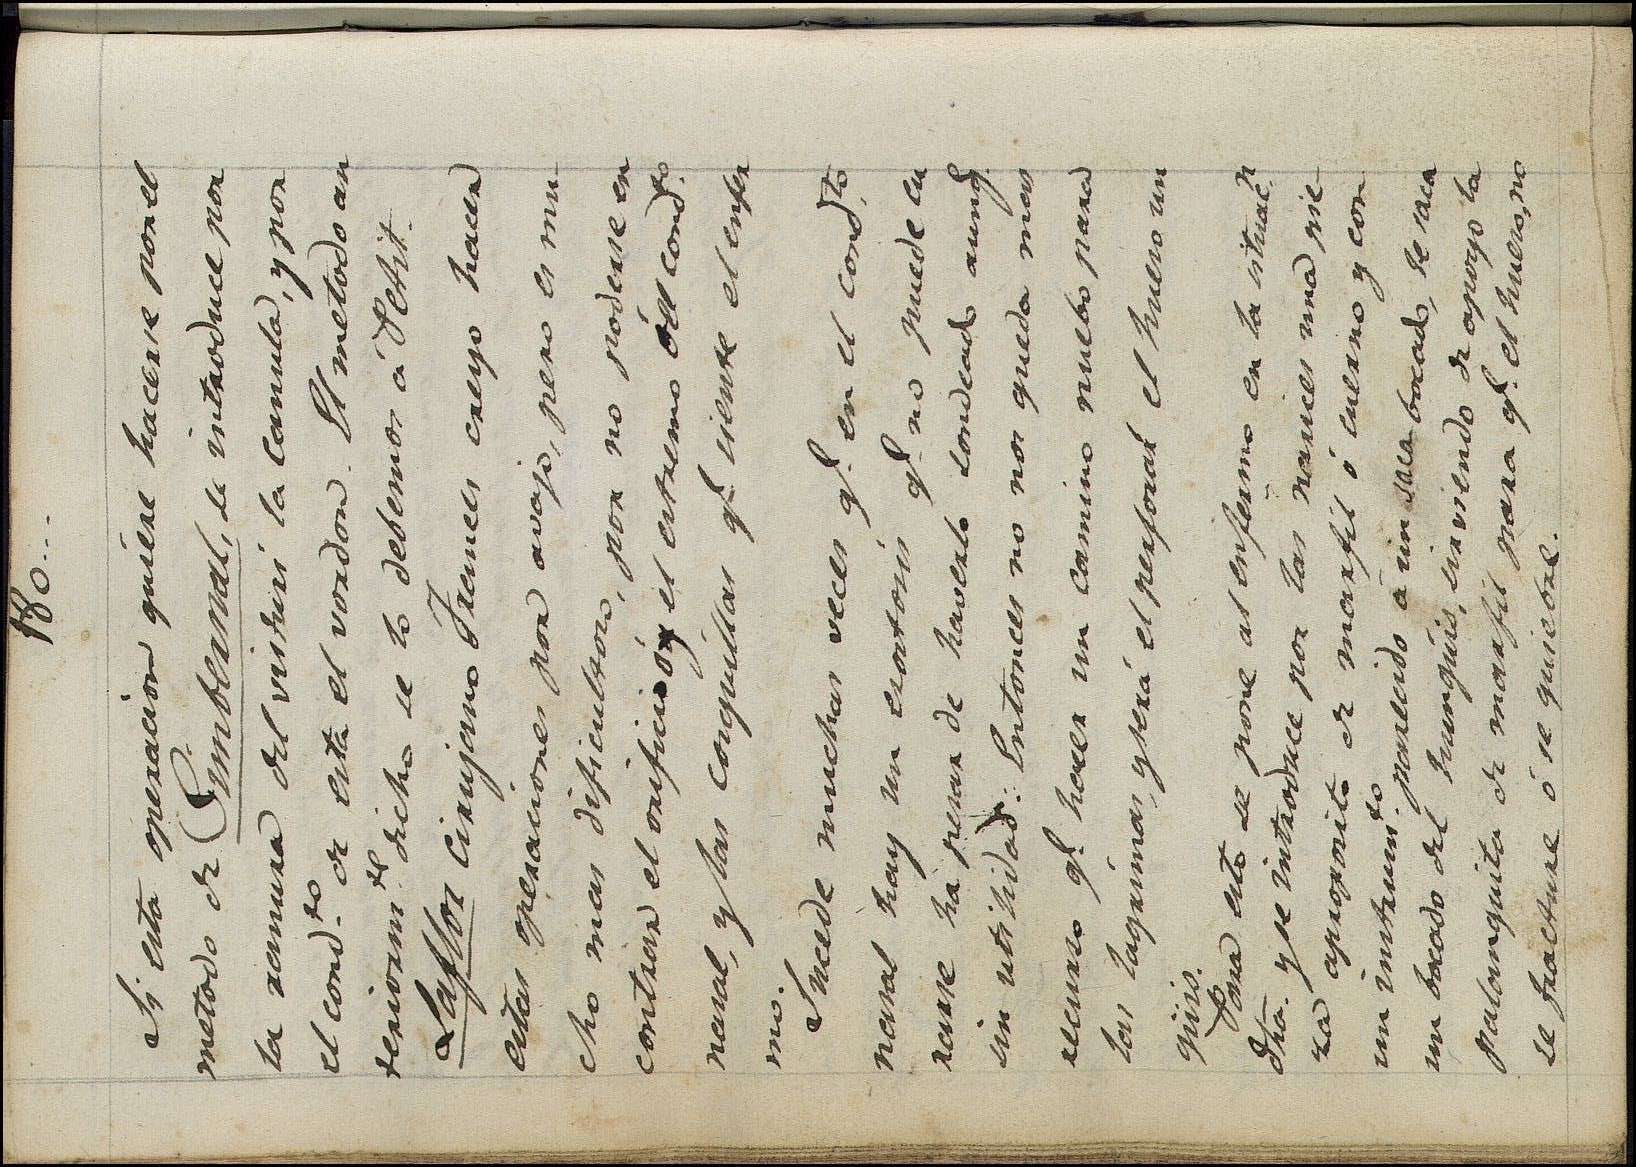 180...
Si esta operacion quiere hacerse por el
metodo de Gumblernal, se introduce por
la ranura del visturi la canula, y por
el cond.to de esta el vordon. El metodo an
teriorm.te dicho se lo debemos á Petit.
Laflor Cirujano Frances creyo hacer
estas operaciones por avajo, pero es mu
cho mas dificultoso, por no poderse en
contrar el orificio ó el estremo del cond.to
nasal, y las conquillas q.e siente el enfer
mo.
Sucede muchas veces q.e en el cond.to
nasal hay un esortosis q.e no puede cu
rarse há pesar de haverlo sondeado aunq.e
sin utilidad: Entonces no nos queda mas
recurso q.e hacer un camino nuebo para
las lagrimas, y será el perforar el hueso un
guis.
Para esto se pone al enfermo en la situac.n
dha. y se introduce por las narices una pie
za aproposito de marfil ó cuerno y con
un instrum.to parecido á un saca bocado, se saca
un bocado del hunguis, sirviendo de apoyo la
palanquita de marfil para q.e el hueso, no
se fracture ó se quiebre.